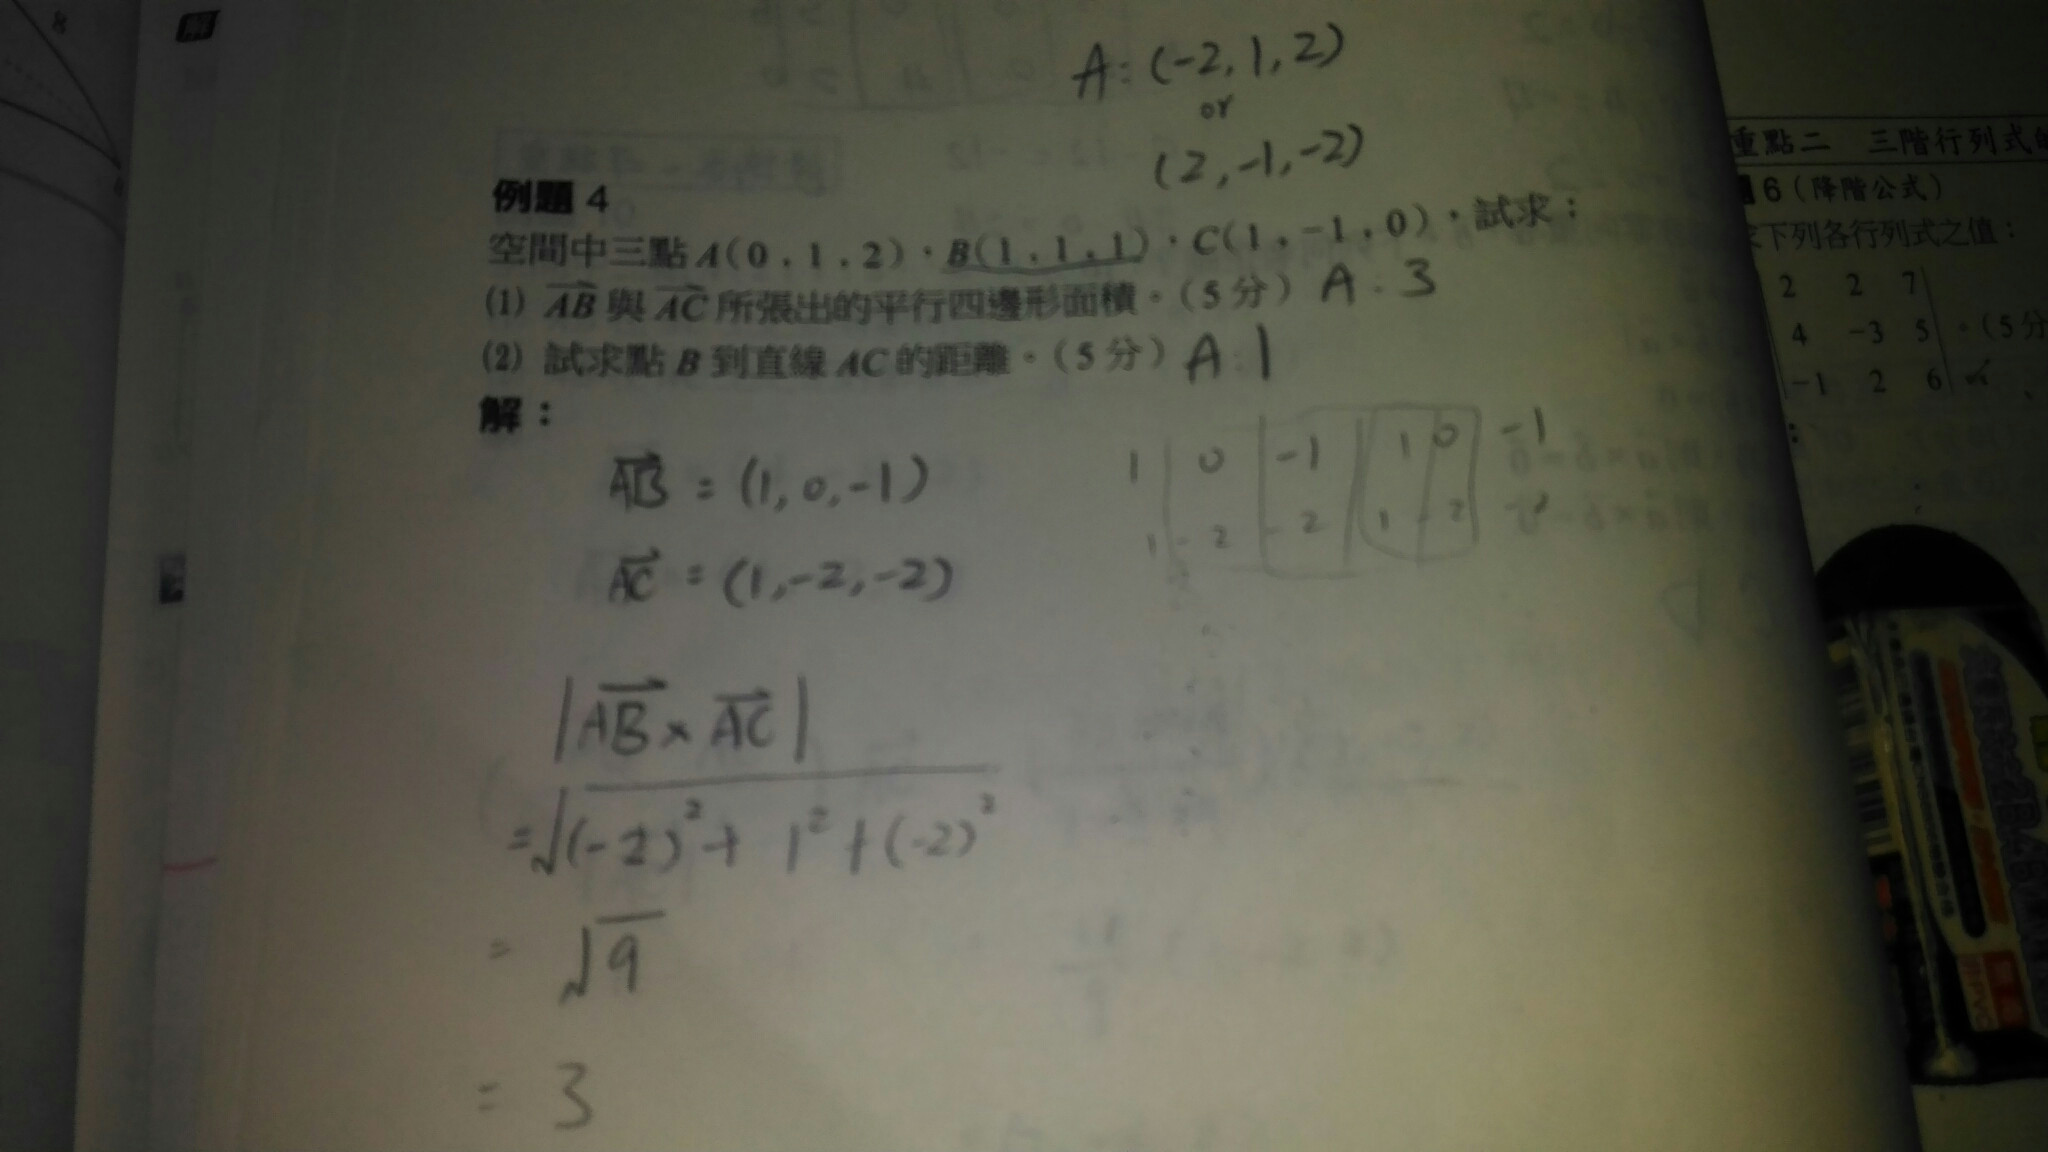 A: (-2, 1, 2)
or
(2, -1, -2)
例題 4
空間中三點 A(0，1，2)，B(1，1，1)，C(1，-1，0)，試求：
(1) AB 與 AC 所張出的平行四邊形面積。(5 分) A. 3
(2) 試求點 B 到直線 AC 的距離。(5 分) A: 1
解：
AB = (1, 0, -1)
AC = (1, -2, -2)
1 0 -1 1 0 -1
1 -2 -2 1 -2
|AB × AC|
= √(-2)² + 1² + (-2)²
= √9
= 3
重點二 三階行列式
6 (降階公式)
下列各行列式之值：
2 2 7
4 -3 5 。(5 分
-1 2 6